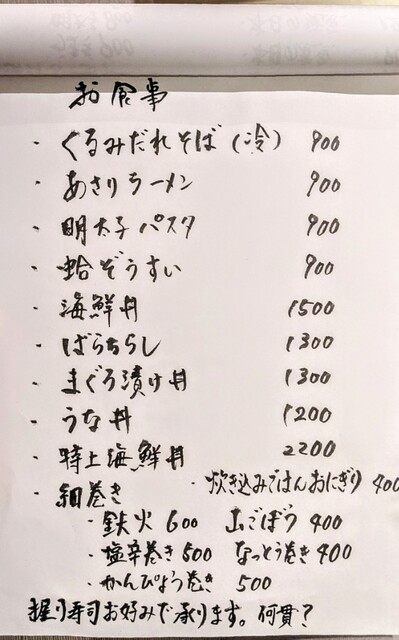 お食事
・くるみだれそば(冷) 900
・あさりラーメン 900
・明太子パスタ 900
・蛤ぞうすい 900
・海鮮丼 1500
・ばらちらし 1300
・まぐろ漬け丼 1300
・うな丼 1200
・特上海鮮丼 2200
・炊き込みごはんおにぎり 400
・細巻き
・鉄火 600 山ごぼう 400
・塩辛巻き 500 なっとう巻き 400
・かんぴょう巻き 500
握り寿司お好みで承ります。何貫?